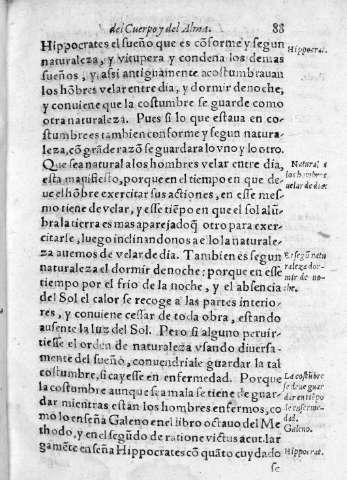 del Cuerpo y del Alma. 88
Hippocrates el sueño que es cõforme y segun
naturaleza, y vitupera y condena los demas
sueños, y assi antiguamente acostumbrauan
los hõbres velar entre dia, y dormir de noche,
y conuiene que la costumbre se guarde como
otra naturaleza. Pues si lo que estaua en co-
stumbre es tambien conforme y segun natura-
leza, cõ grãde razõ se guardara lo vno y lo otro.
Que sea natural a los hombres velar entre dia,
esta manifiesto, porque en el tiempo en que de-
ue el hõbre exercitar sus actiones, en esse mes-
mo tiene de velar, y esse tiẽpo en que el sol alũ-
bra la tierra es mas aparejado q̃ otro para exer-
citarse, luego inclinandonos a ello la naturale-
za auemos de velar de dia. Tambien es segun
naturaleza el dormir de noche: porque en esse
tiempo por el frio de la noche, y el absencia
del Sol el calor se recoge a las partes interio-
res, y conuiene cessar de toda obra, estando
ausente la luz del Sol. Pero si alguno peruir-
tiesse el orden de naturaleza vsando diuersa-
mente del sueño, conuendriale guardar la tal
costumbre, si cayesse en enfermedad. Porque
la costumbre aunque sea mala se tiene de guar-
dar mientras estan los hombres enfermos, co
mo lo enseña Galeno en el libro octauo del Me
thodo, y en el segũdo de ratione victus acut. lar
gamẽte enseña Hippocrates cõ quãto cuydado
se
Hippocrat.
Natural es
los hombres
velar de dia.
Es segũ natu
raleza dor-
mir de no-
che.
La costũbre
se deue guar
dar en tiẽpo
de enferme-
dad.
Galeno.
Hippocrat.